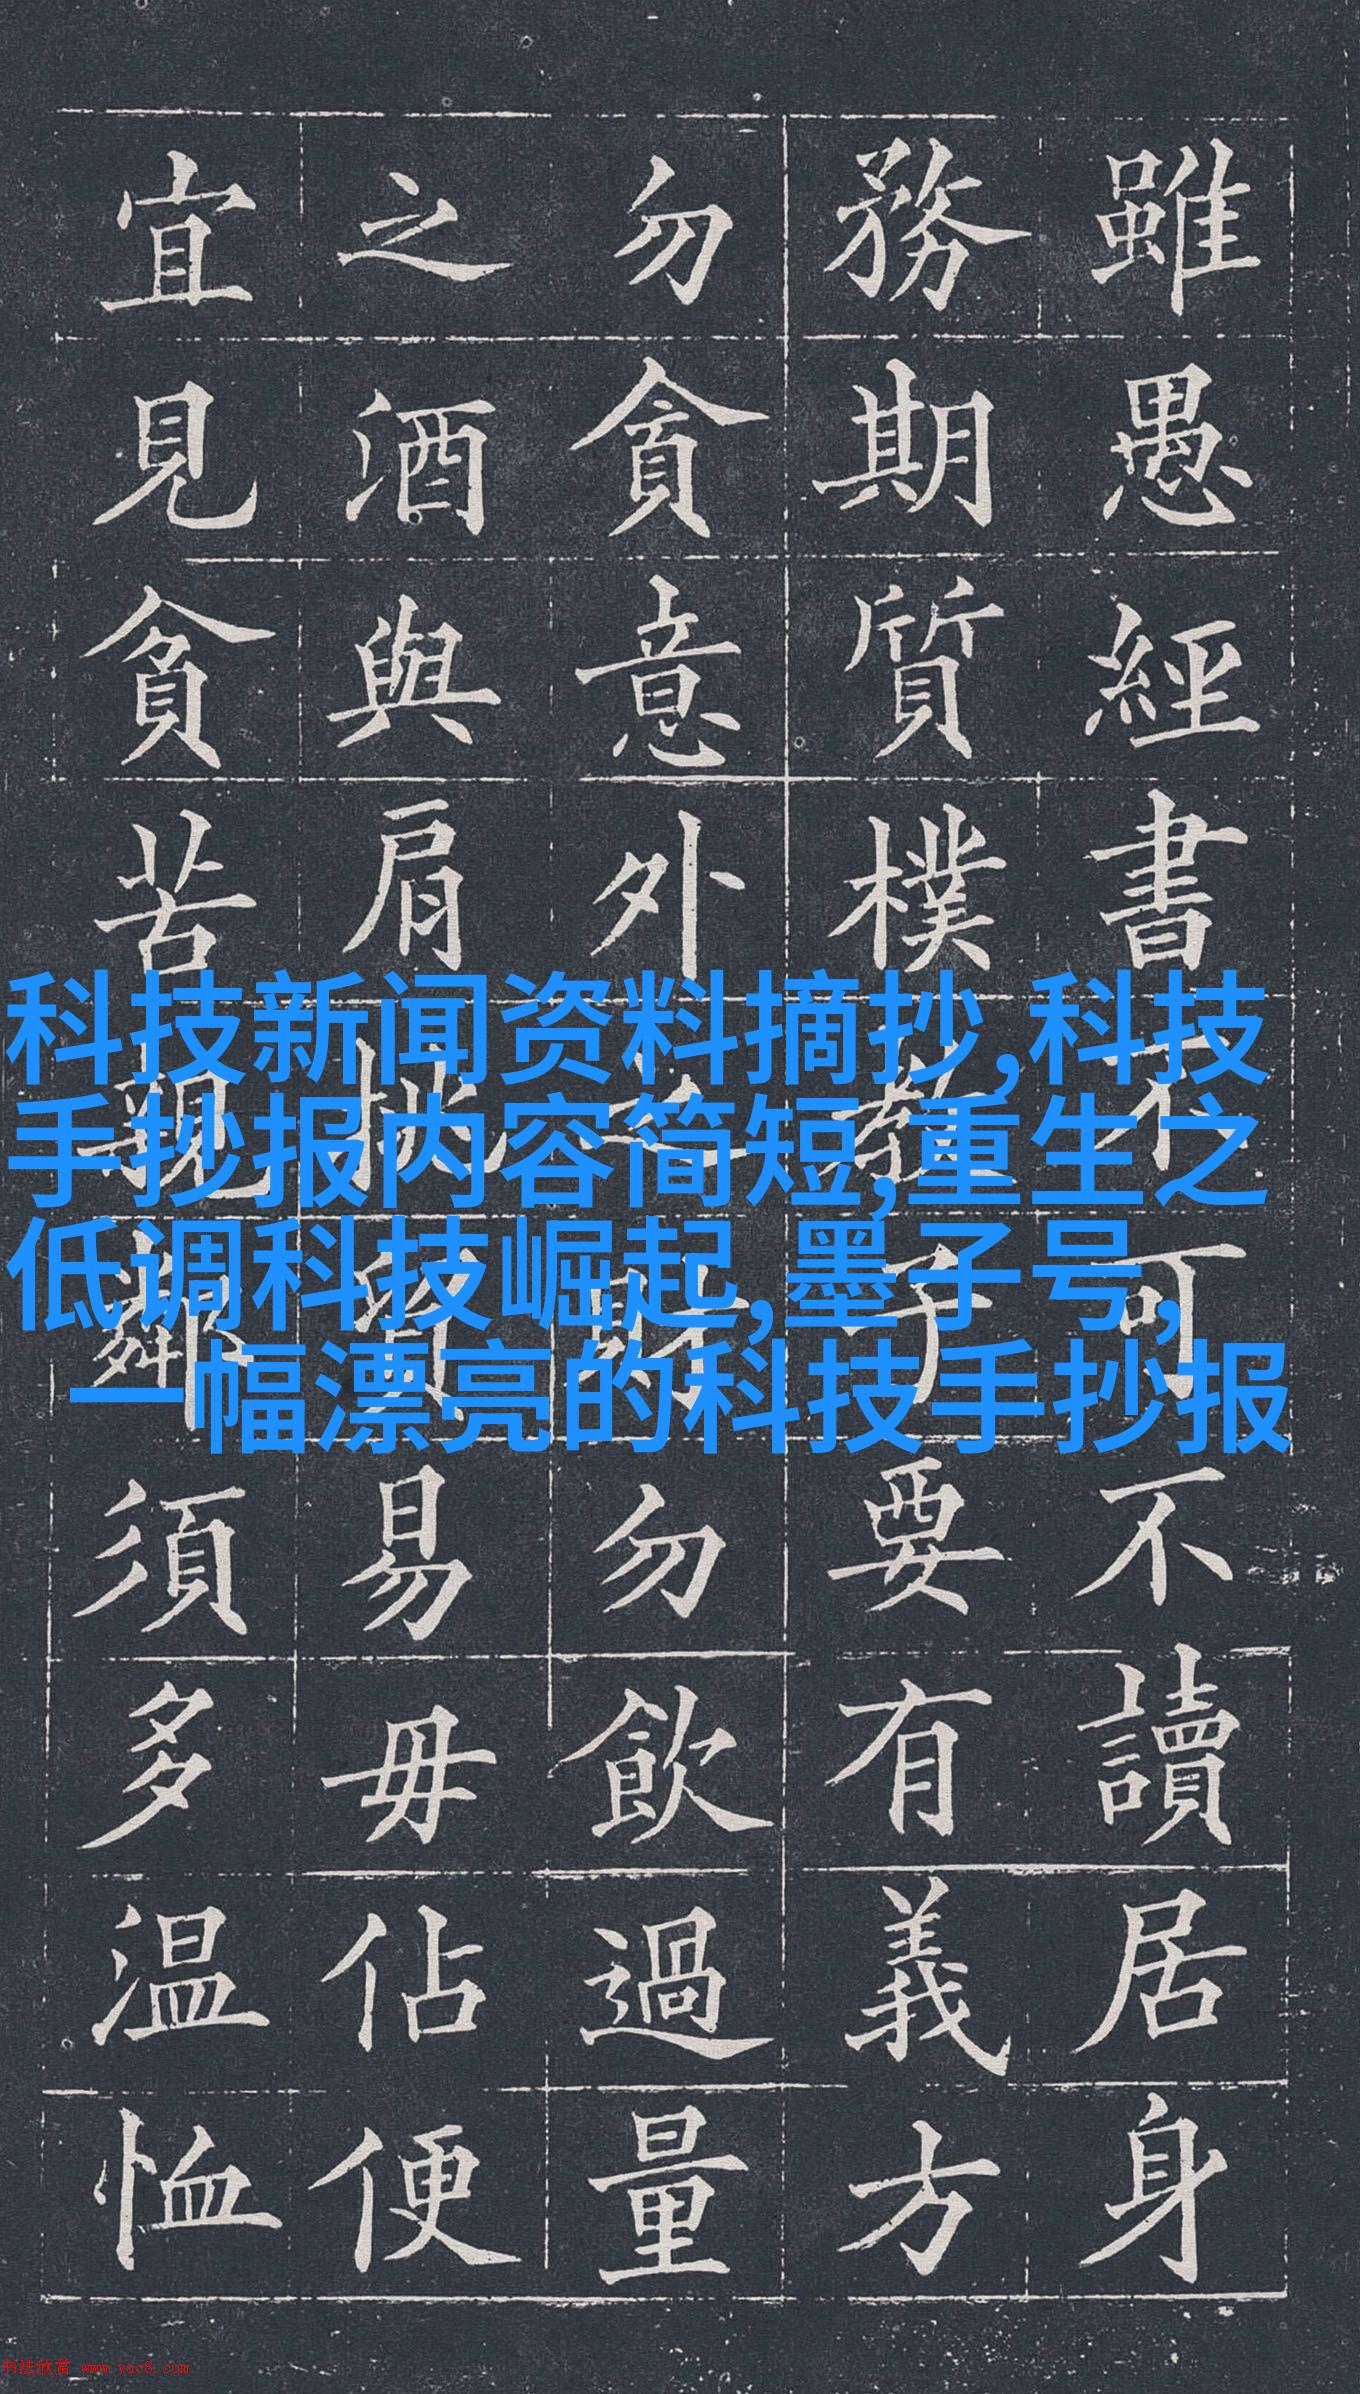 雖愚經書不可不讀居身
務期質樸教子要有義方
勿貪意外之財勿飲過量
之酒與肩挑貿易毋佔便
宜見貧苦親鄰須多温恤
科技新闻资料摘抄,科技
手抄报内容简短,重生之
低调科技崛起,墨子号,
一幅漂亮的科技手抄报
书法欣赏 www.yac8.com